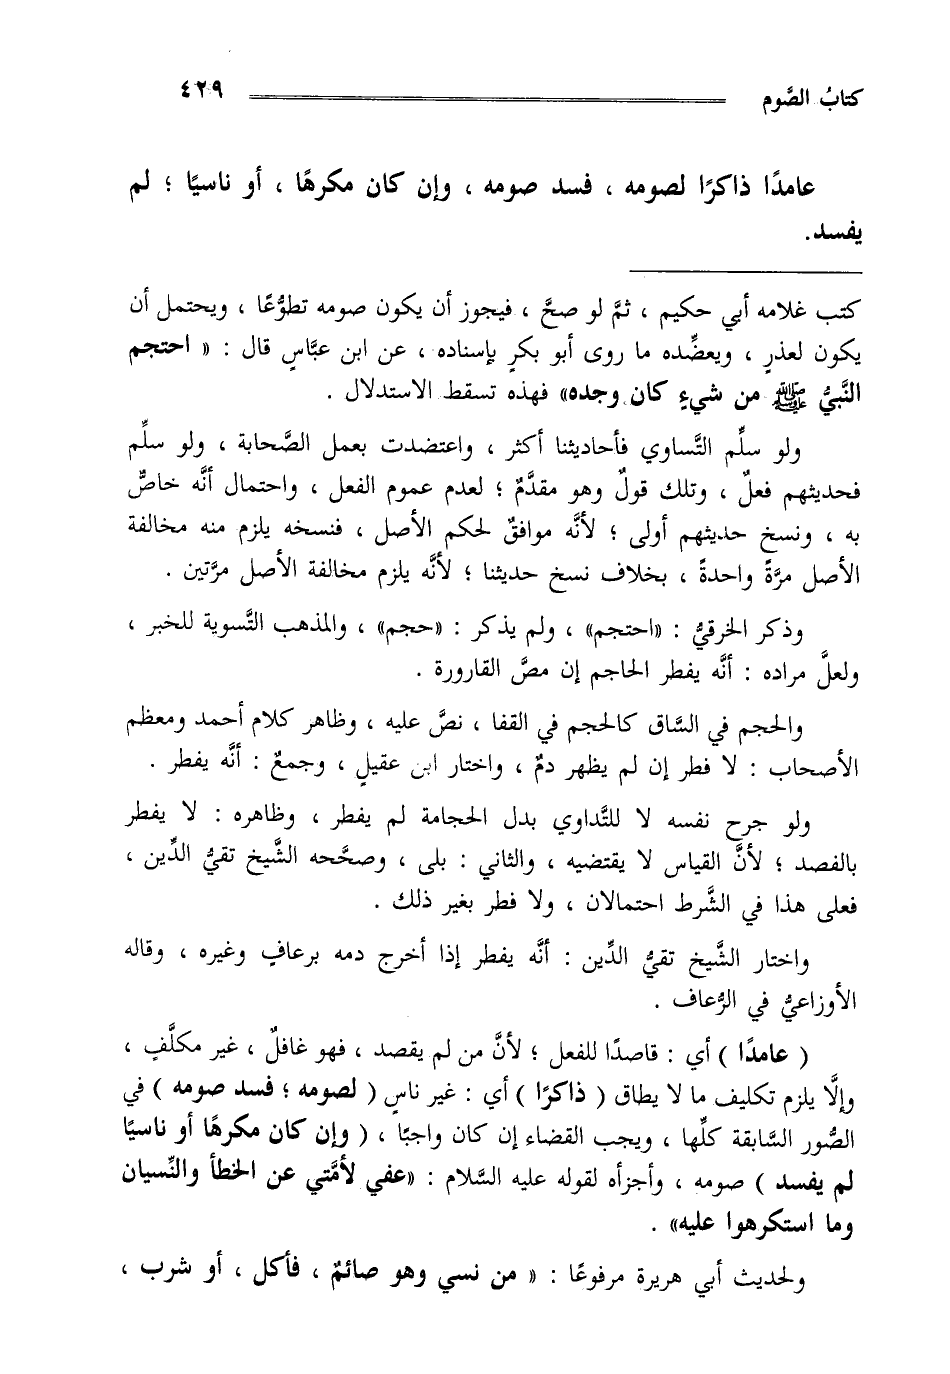 كتابُ الصَّوم ٤٢٩
عامدًا ذاكرًا لصومه ، فسد صومه ، وإن كان مكرهًا ، أو ناسيًا ؛ لم
يفسد.
كتب غلامه أبي حكيم ، ثمَّ لو صحَّ ، فيجوز أن يكون صومه تطوُّعًا ، ويحتمل أن
يكون لعذرٍ ، ويعضِّده ما روى أبو بكرٍ بإسناده ، عن ابن عبَّاسٍ قال : « احتجم
النَّبيُّ ﷺ من شيءٍ كان وجده» فهذه تسقط الاستدلال .
ولو سلِّم التَّساوي فأحاديثنا أكثر ، واعتضدت بعمل الصَّحابة ، ولو سلِّم
فحديثهم فعلٌ ، وتلك قولٌ وهو مقدَّمٌ ؛ لعدم عموم الفعل ، واحتمال أنَّه خاصٌّ
به ، ونسخ حديثهم أولى ؛ لأنَّه موافقٌ لحكم الأصل ، فنسخه يلزم منه مخالفة
الأصل مرَّةً واحدةً ، بخلاف نسخ حديثنا ؛ لأنَّه يلزم مخالفة الأصل مرَّتين .
وذكر الخرقيُّ : «احتجم» ، ولم يذكر : «حجم» ، والمذهب التَّسوية للخبر ،
ولعلَّ مراده : أنَّه يفطر الحاجم إن مصَّ القارورة .
والحجم في السَّاق كالحجم في القفا ، نصَّ عليه ، وظاهر كلام أحمد ومعظم
الأصحاب : لا فطر إن لم يظهر دمٌ ، واختار ابن عقيلٍ ، وجمعٌ : أنَّه يفطر .
ولو جرح نفسه لا للتَّداوي بدل الحجامة لم يفطر ، وظاهره : لا يفطر
بالفصد ؛ لأنَّ القياس لا يقتضيه ، والثاني : بلى ، وصحَّحه الشَّيخ تقيُّ الدِّين ،
فعلى هذا في الشَّرط احتمالان ، ولا فطر بغير ذلك .
واختار الشَّيخ تقيُّ الدِّين : أنَّه يفطر إذا أخرج دمه برعافٍ وغيره ، وقاله
الأوزاعيُّ في الرُّعاف .
( عامدًا ) أي : قاصدًا للفعل ؛ لأنَّ من لم يقصد ، فهو غافلٌ ، غير مكلَّفٍ ،
وإلَّا يلزم تكليف ما لا يطاق ( ذاكرًا ) أي : غير ناسٍ ( لصومه ؛ فسد صومه ) في
الصُّور السَّابقة كلِّها ، ويجب القضاء إن كان واجبًا ، ( وإن كان مكرهًا أو ناسيًا
لم يفسد ) صومه ، وأجزأه لقوله عليه السَّلام : «عفي لأمَّتي عن الخطأ والنِّسيان
وما استكرهوا عليه» .
ولحديث أبي هريرة مرفوعًا : « من نسي وهو صائمٌ ، فأكل ، أو شرب ،